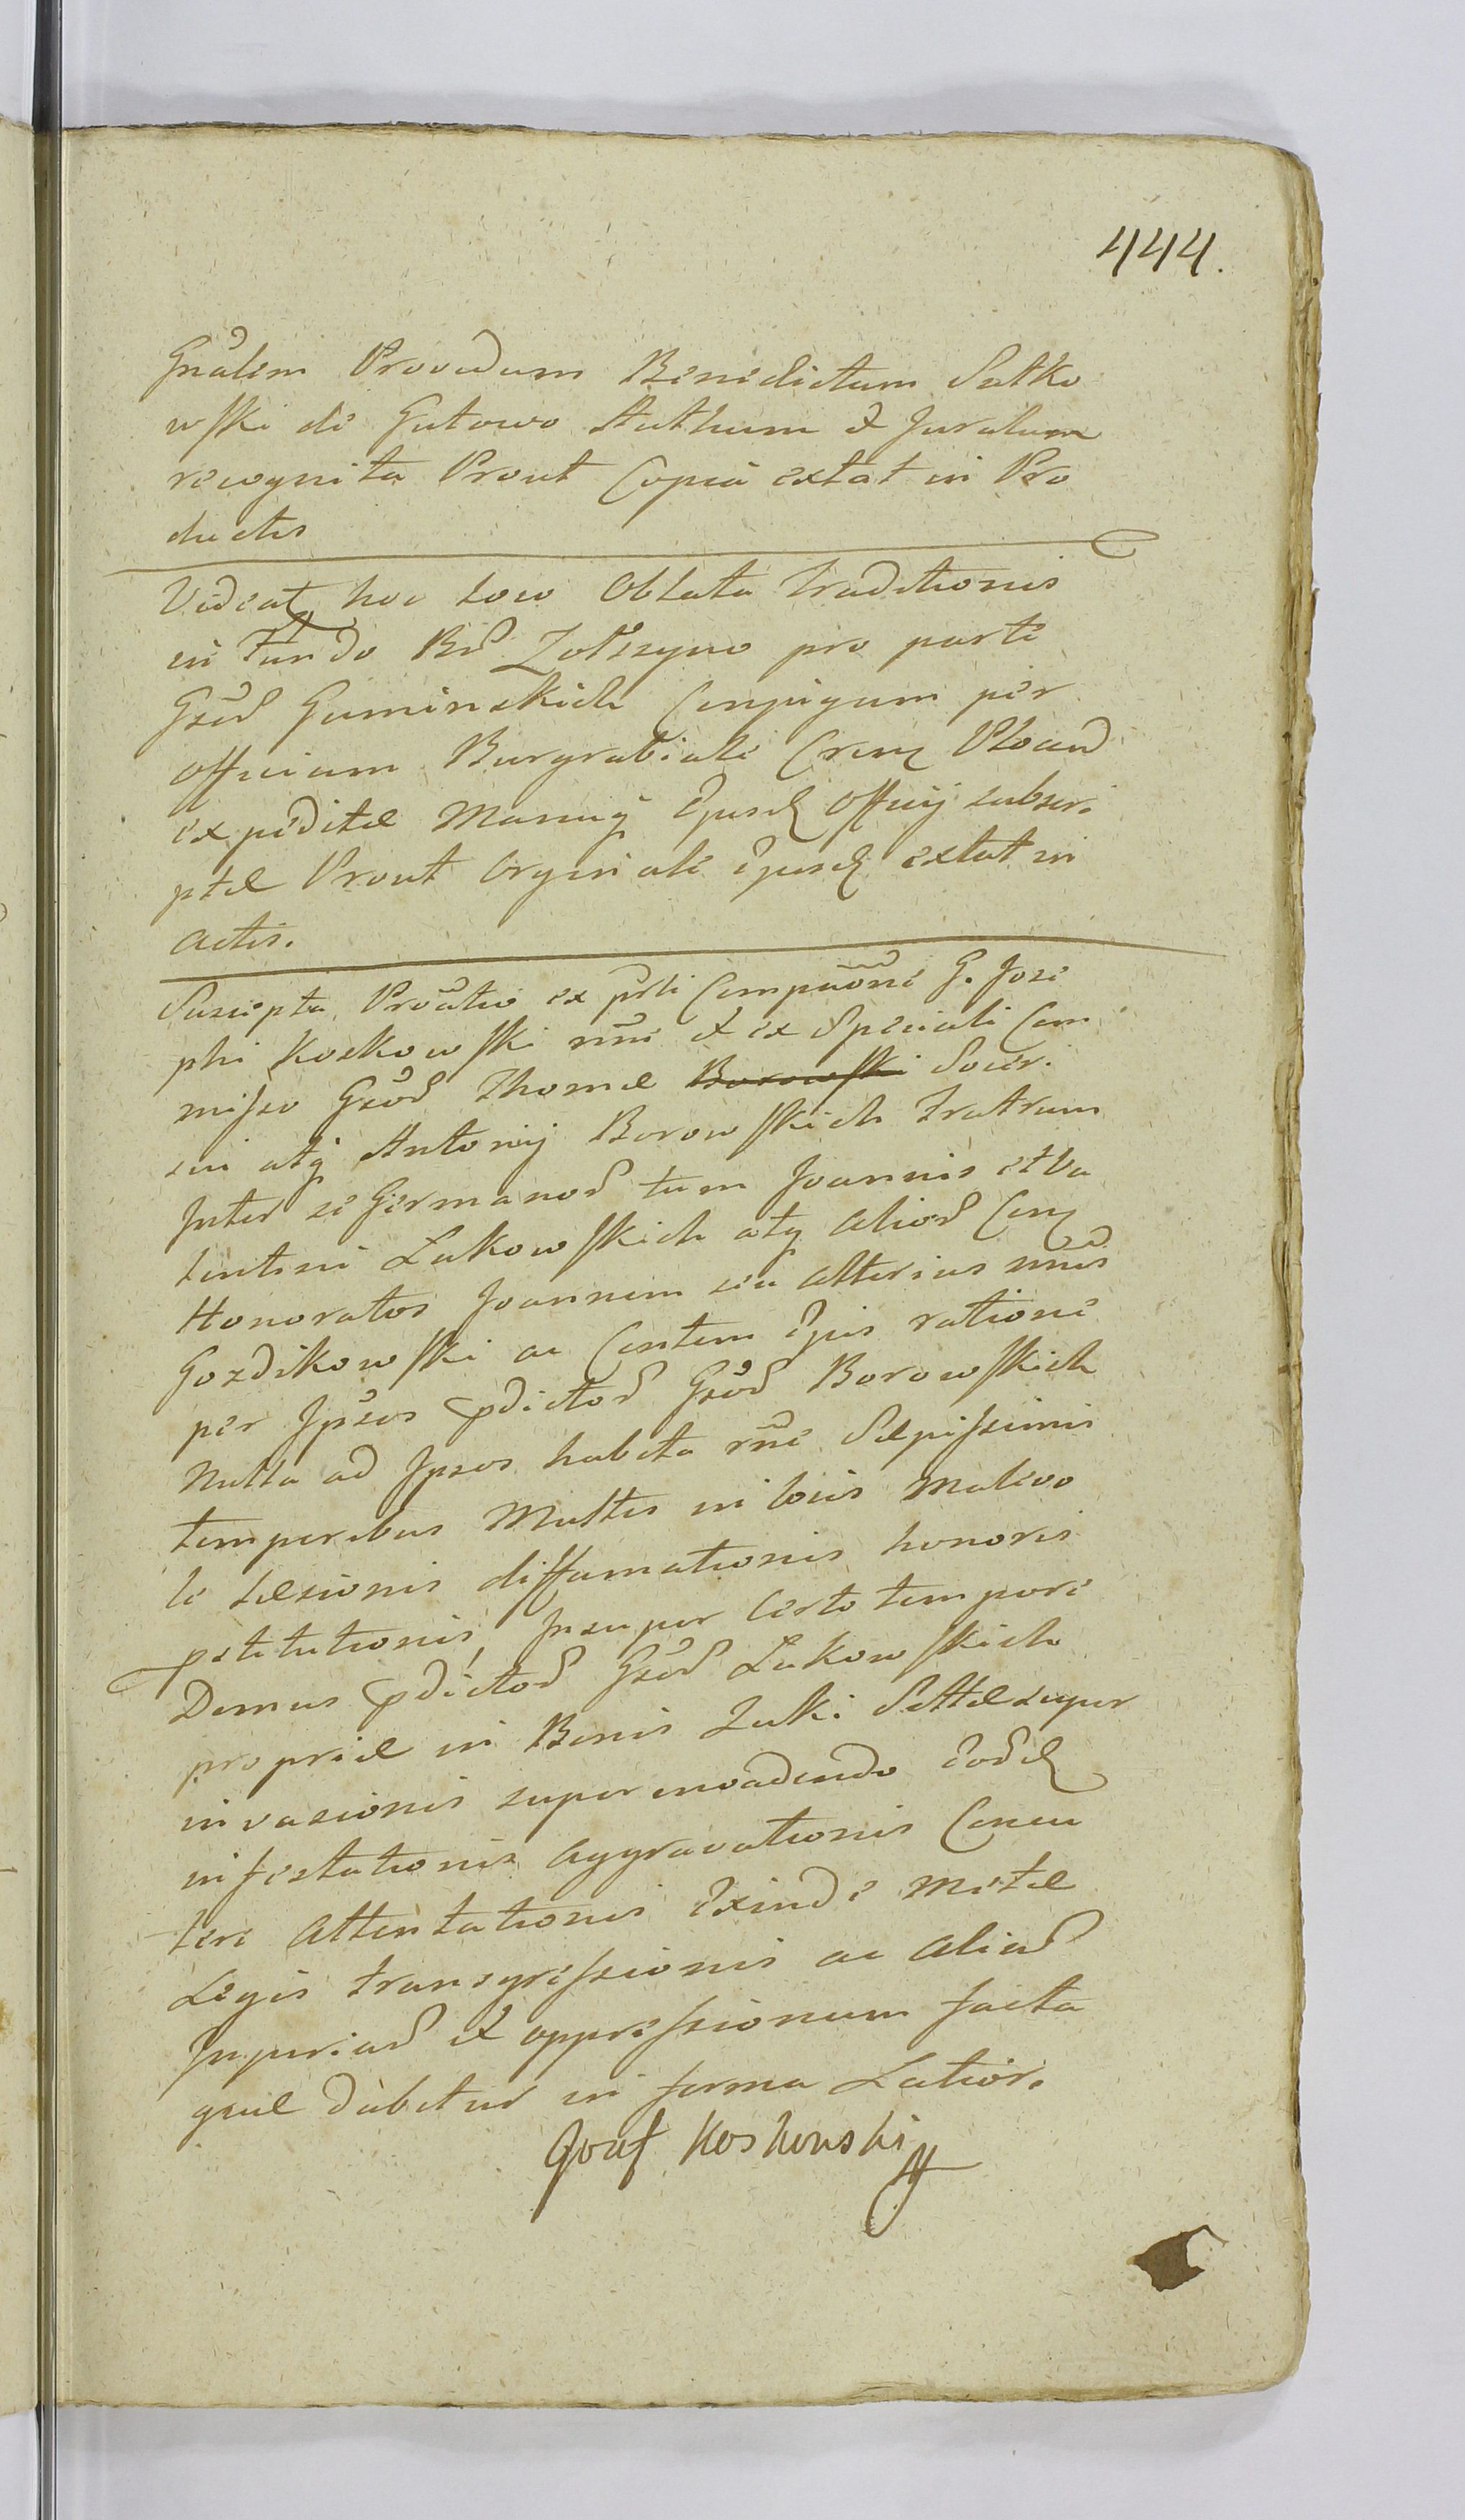 444.
Gnãlem Providum Benedictum Sutko
wski de Gutowo Authum et Juratum
recognita Prout Copia extat in Pro
ductis
Videatq hoc Loco Oblata Traditionis
in Fundo Bd Zołszyno pro parte
Gsod Guminskich Conjugum per
Officium Burgrabiale Crens Plocend
expeditæ Manuq Ejusd Officij subscri
ptæ Prout Originale Ejusd extat in
actis.
Suscepta Prõtatio ex prti Compnõne G. Jose
phi Koskowski nni et ex Speciali Com
misso Gsod Thomæ Borowski Soceri
sui atq Antonij Borowskich Fratrum
Inter se Germanod tum Joannis et Va
lentini Lukowskich atq aliod Con
Honoratos Joannem seu alterius nnis
Gozdikowski ac Contem Ejus ratione
per Ipsos pdictod Gsod Borowskich
Nulla ad Ipsos habita rne Sæpissimis
temporibus Multis in locis Malevo
le Læsionis diffamationis honoris
pstitutionis, Insuper Certo tempore
Domus pdictod Gsod Lukowskich
propriæ in Bonis Luki Sittæ super
invasionis super invadendo Eosd
infestationis aggravationis Concu
teri Attentationis Exinde Metæ
Legis transgressionis ac aliad
Injuriad et oppressionum facta
quæ dabitur in forma Latiori
Jozef Koskowski